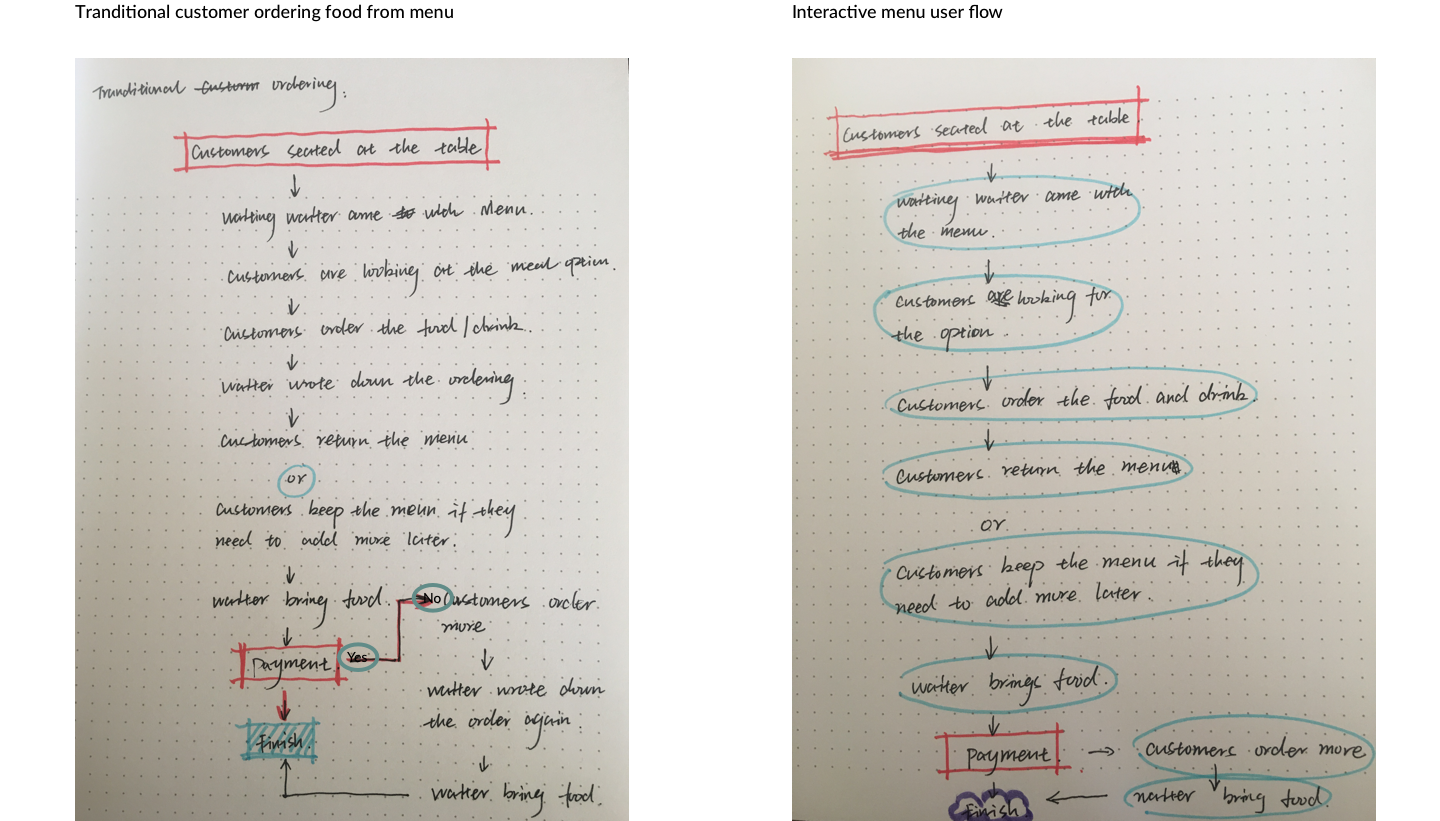 Tranditional customer ordering food from menu
Tranditional Custom ordering.
Customers seated at the table
Waiting waiter came to with Menu.
Customers are looking at the meal option.
Customers order the food / drink.
Waiter wrote down the ordering.
Customers return the menu
or
Customers keep the menu if they
need to add more later.
waiter bring food.
No
Customers order
more
Payment
Yes
waiter wrote down
the order again.
Finish.
waiter bring food.
Interactive menu user flow
Customers seated at the table.
waiting waiter came with
the menu.
Customers are looking for
the option.
Customers order the food and drink.
Customers return the menu
or
Customers keep the menu if they
need to add more later.
waiter brings food.
Payment.
Customers order more
Finish.
waiter bring food.